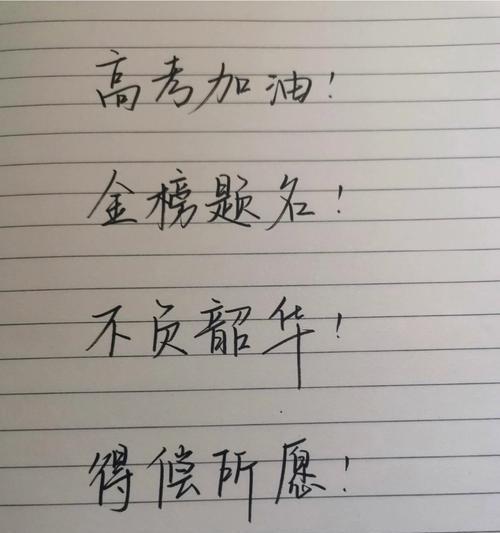 高考加油！
金榜题名！
不负韶华！
得偿所愿！